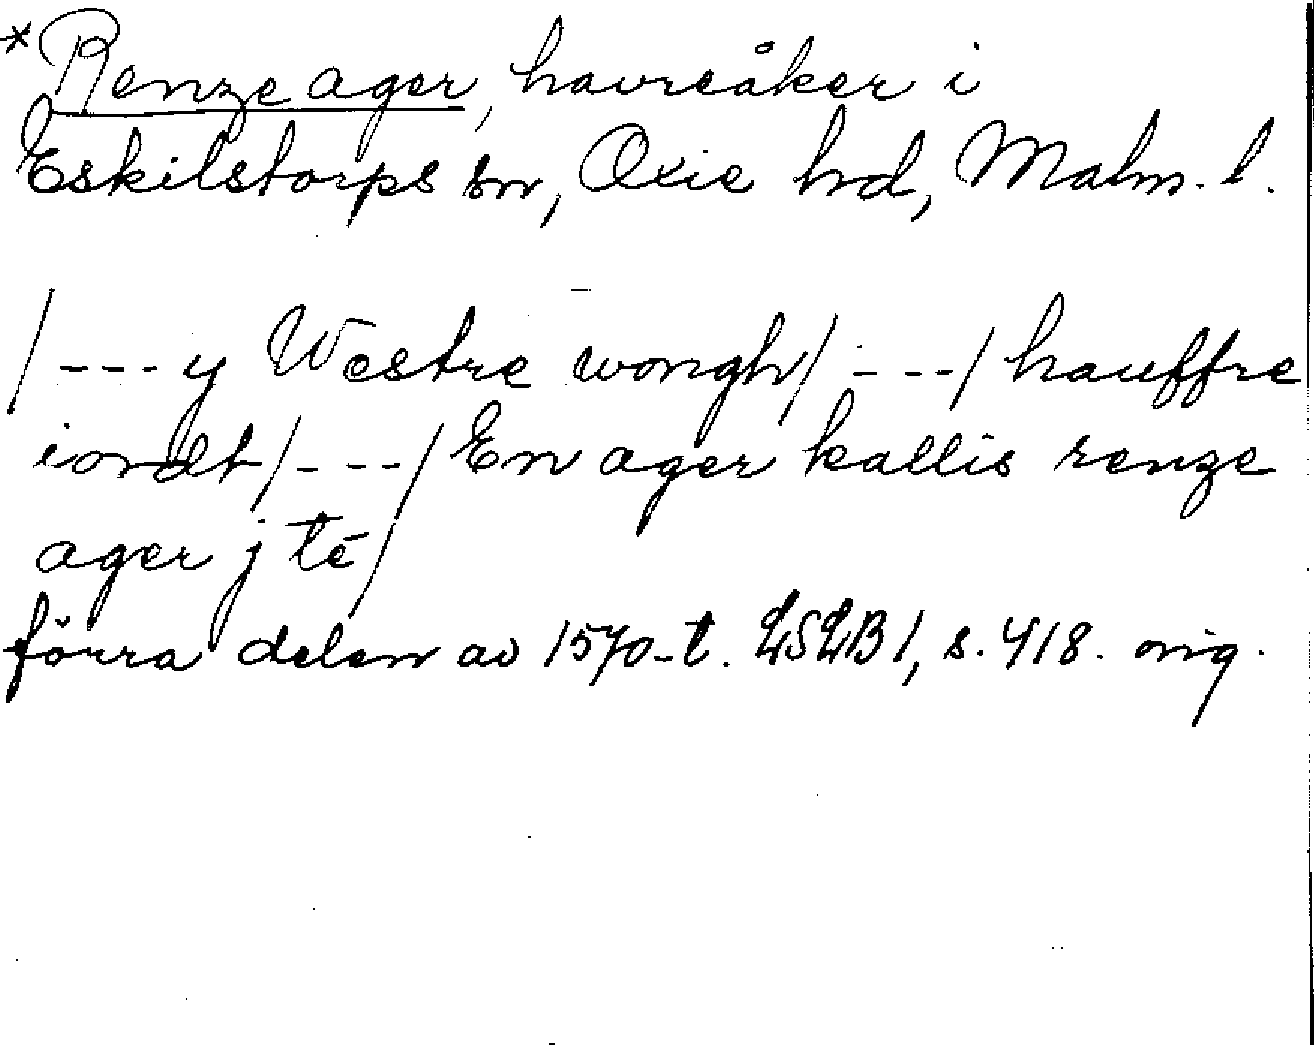 *Renze ager, havreåker i
Eskilstorps sn, Oxie hd, Malm. l.
/---y Westre wongh/---/hauffre
iordt/---/En ager kallis renze
ager j té/
förra delen av 1570-t. LSLB1, s. 418. orig.